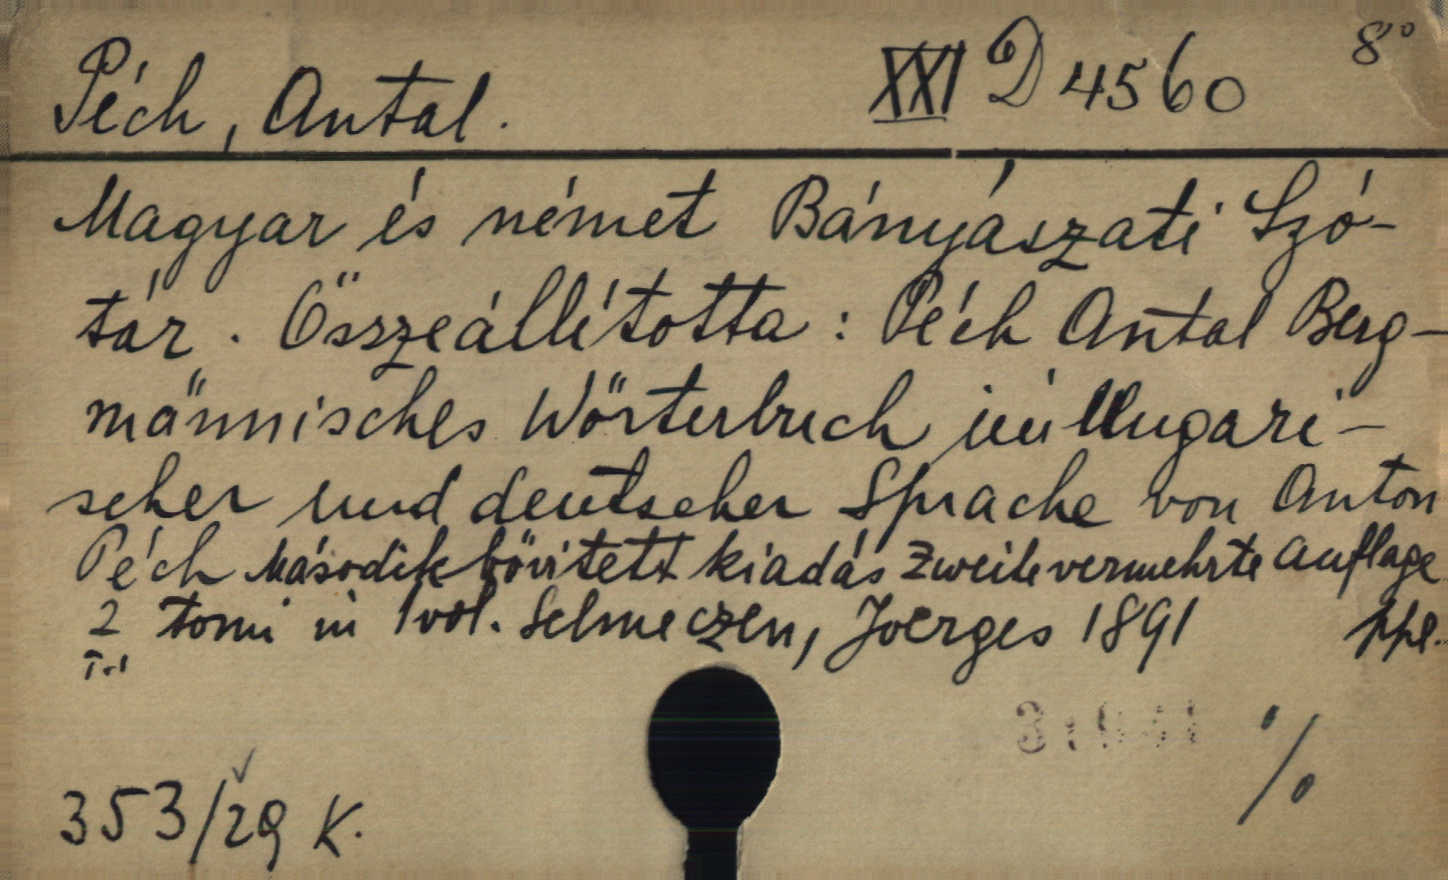 Péch, Antal. XXI D 4560 8°
Magyar és német Bányászati Szó-
tár. Összeállította: Péch Antal Berg-
männisches Wörterbuch in Ungari-
scher und deutscher Sprache von Anton
Péch Második bővített kiadás Zweite vermehrte Auflage
2 tomi in 1 vol. Selmeczen, Joerges 1891 ppl.
353/29 K. %